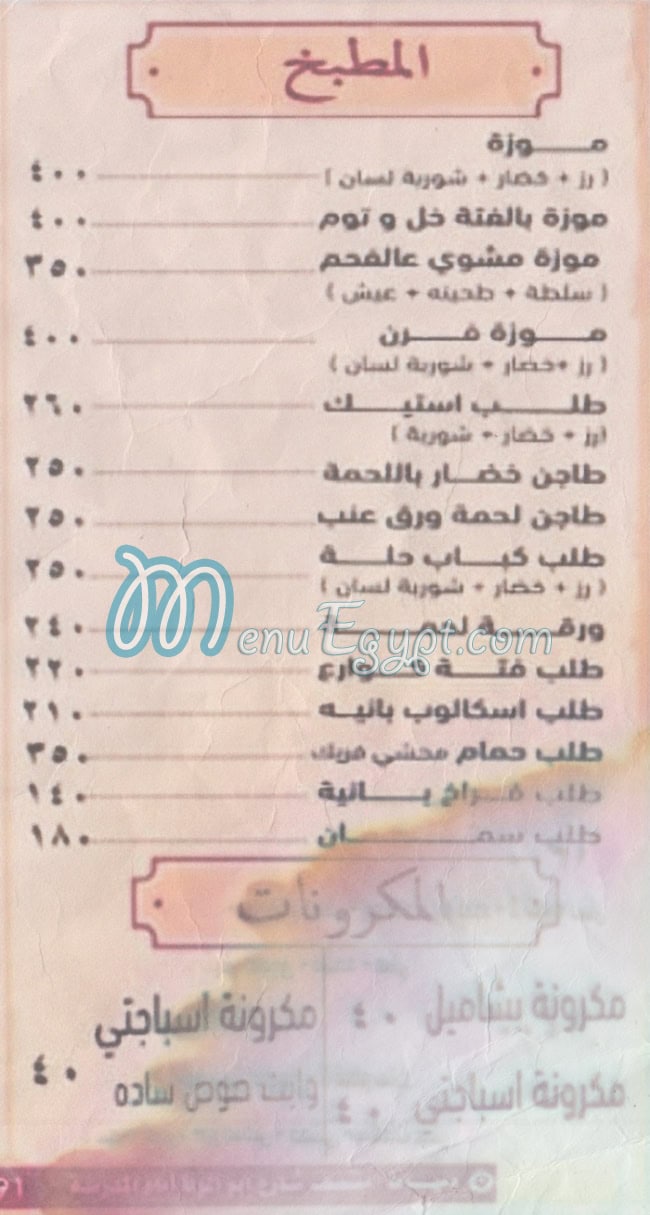 المطبخ
موزة
( رز + خضار + شوربة لسان ) ٤٠٠
موزة بالفتة خل و توم ٤٠٠
موزة مشوي عالفحم ٣٥٠
( سلطة + طحينه + عيش )
موزة فرن ٤٠٠
( رز +خضار + شوربة لسان )
طلب استيك ٢٦٠
(رز + خضار + شوربة )
طاجن خضار باللحمة ٢٥٠
طاجن لحمة ورق عنب ٢٥٠
طلب كباب حلة ٢٥٠
( رز + خضار + شوربة لسان )
ورقة لحمة ٢٤٠
طلب فتة كوارع ٢٢٠
طلب اسكالوب بانيه ٢١٠
طلب حمام محشي فريك ٣٥٠
طلب فراخ بانية ١٤٠
طلب سمان ١٨٠
MenuEgypt.com
المكرونات
مكرونة بشاميل ٤٠
مكرونة اسباجتي ٤٠
مكرونة اسباجتي
وايت صوص ساده ٤٠